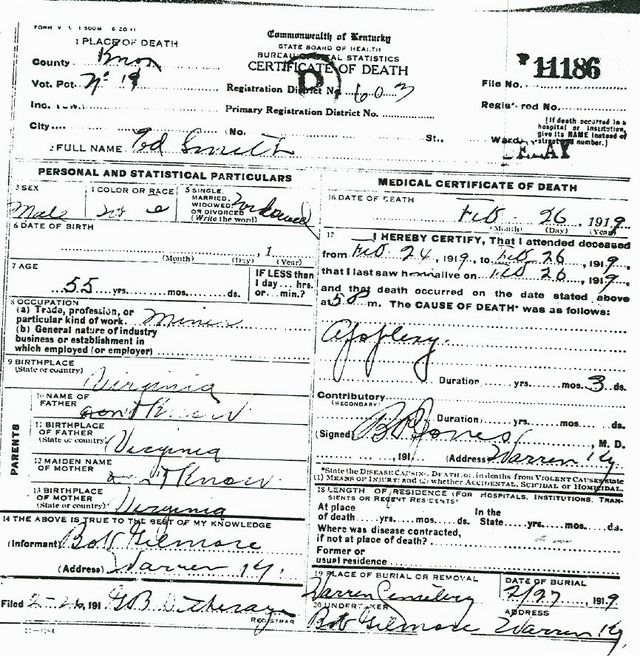 FORM V. S. 1-500M 6-20-11
Commonwealth of Kentucky
STATE BOARD OF HEALTH
BUREAU OF VITAL STATISTICS
CERTIFICATE OF DEATH
1 PLACE OF DEATH
County Knox
Vot. Pct. No 19
Inc. Town
City No. St., Ward
Registration District No. 603
Primary Registration District No.
File No. 11186
Registered No.
[If death occurred in a
hospital or institution,
give its NAME instead of
street and number.]
2 FULL NAME Ted Smith
PERSONAL AND STATISTICAL PARTICULARS
3 SEX
Male
4 COLOR OR RACE
5 SINGLE,
MARRIED,
WIDOWED,
OR DIVORCED
(Write the word)
Widowed
6 DATE OF BIRTH
, 1
(Month) (Day) (Year)
7 AGE
55 yrs. mos. ds.
IF LESS than
1 day... hrs.
or... min.?
8 OCCUPATION
(a) Trade, profession, or
particular kind of work. Miner
(b) General nature of industry
business or establishment in
which employed (or employer)
9 BIRTHPLACE
(State or country)
Virginia
PARENTS
10 NAME OF
FATHER
dont Know
11 BIRTHPLACE
OF FATHER
(State or country)
Virginia
12 MAIDEN NAME
OF MOTHER
dont Know
13 BIRTHPLACE
OF MOTHER
(State or country)
Virginia
14 THE ABOVE IS TRUE TO THE BEST OF MY KNOWLEDGE
(Informant) Bob Gilmore
(Address) Warren Ky.
Filed 2-26, 191 G.B.
REGISTRAR
MEDICAL CERTIFICATE OF DEATH
16 DATE OF DEATH
Feb 26, 1919
(Month) (Day) (Year)
17 I HEREBY CERTIFY, That I attended deceased
from Feb 24, 1919, to Feb 26, 1919,
that I last saw him alive on Feb 26, 1919,
and that death occurred on the date stated above
at m. The CAUSE OF DEATH* was as follows:
Apoplexy
Duration yrs. mos. 3 ds.
Contributory
(SECONDARY)
Duration yrs. mos. ds.
(Signed) Jones, M. D.
, 191 (Address) Warren Ky
*State the DISEASE CAUSING DEATH, or, in deaths from VIOLENT CAUSES state
(1) MEANS OF INJURY; and (2) whether ACCIDENTAL, SUICIDAL or HOMICIDAL.
18 LENGTH OF RESIDENCE (FOR HOSPITALS, INSTITUTIONS, TRAN-
SIENTS OR RECENT RESIDENTS)
At place
of death yrs. mos. ds.
In the
State yrs. mos. ds.
Where was disease contracted,
if not at place of death?
Former or
usual residence
19 PLACE OF BURIAL OR REMOVAL
Warren Cemetery
DATE OF BURIAL
2/27 1919
20 UNDERTAKER
Bob Gilmore
ADDRESS
Warren Ky